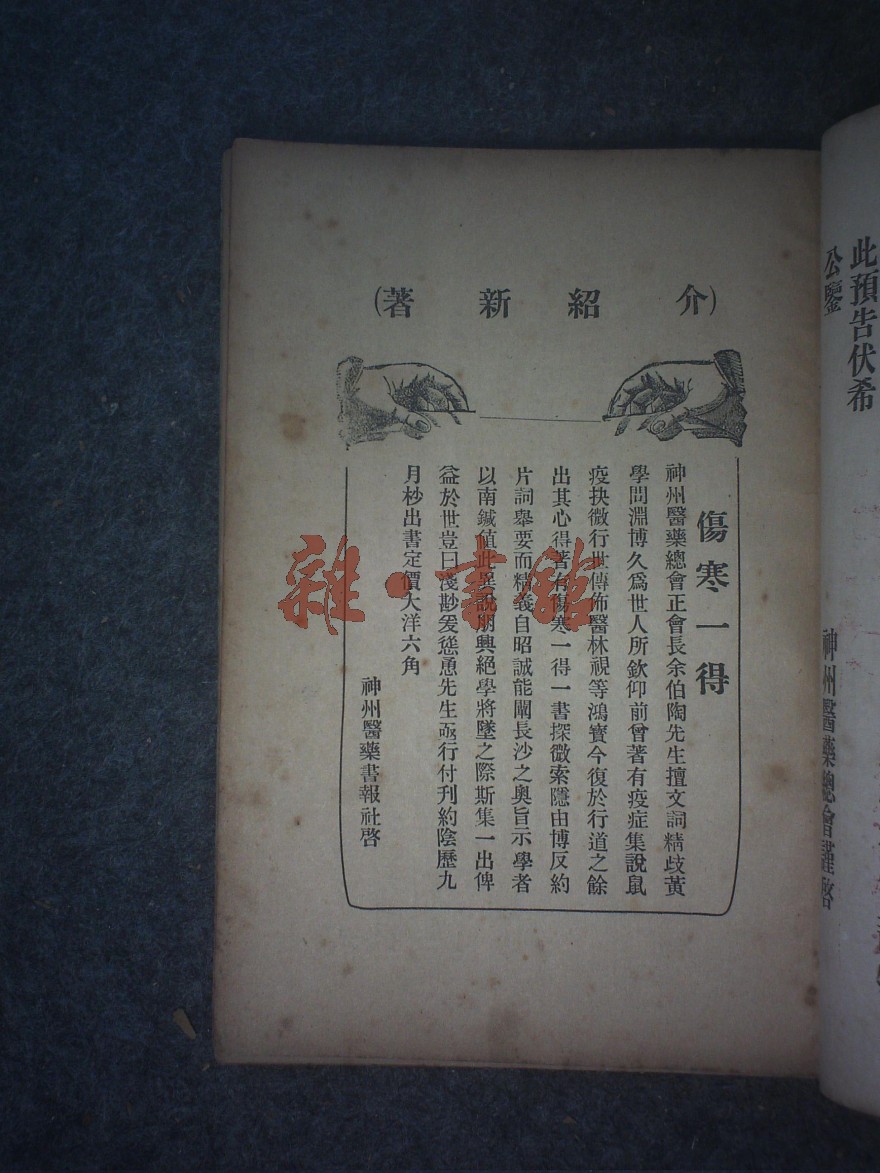 此預告伏希
公鑒
神州醫藥總會謹啓
(介紹新著)
傷寒一得
神州醫藥總會正會長余伯陶先生擅文詞精歧黃
學問淵博久爲世人所欽仰前曾著有疫症集說鼠
疫抉微行世傳佈醫林視等鴻寶今復於行道之餘
出其心得著有傷寒一得一書探微索隱由博反約
片詞舉要而精義自昭誠能闡長沙之奧旨示學者
以南鍼値此異說朋興絕學將墜之際斯集一出俾
益於世豈曰淺尠爰慫恿先生亟行付刊約陰歷九
月杪出書定價大洋六角
神州醫藥書報社啓
雜·書館